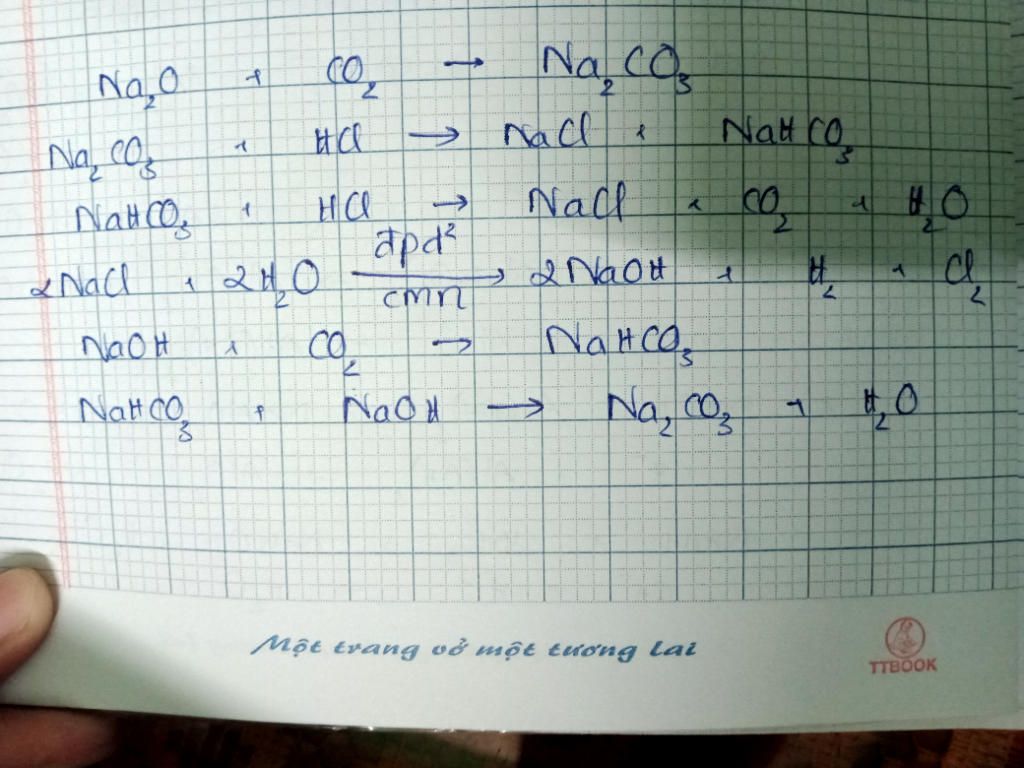 Na₂O + CO₂ → Na₂CO₃
Na₂CO₃ + HCl → NaCl + NaHCO₃
NaHCO₃ + HCl → NaCl + CO₂ + H₂O
đpd²
2NaCl + 2H₂O → 2NaOH + H₂ + Cl₂
cmn
NaOH + CO₂ → NaHCO₃
NaHCO₃ + NaOH → Na₂CO₃ + H₂O
Một trang vở một tương lai
TTBOOK